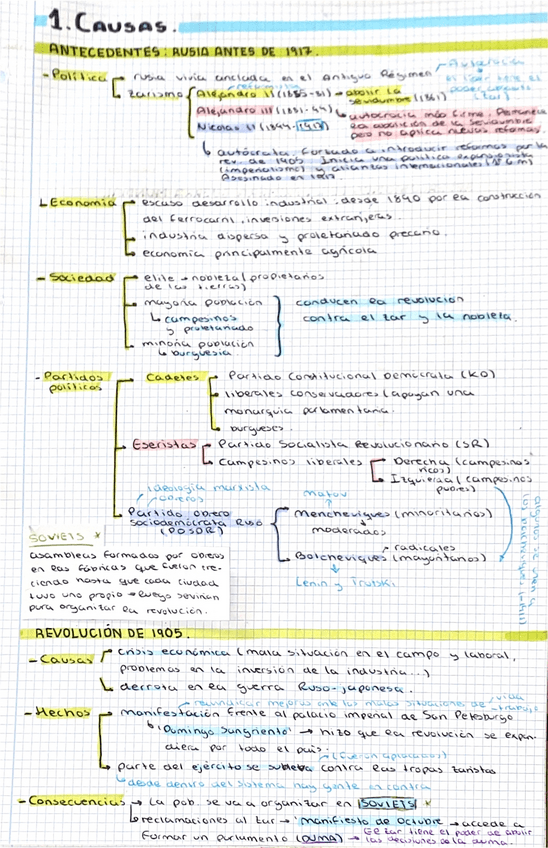 1. CAUSAS.
ANTECEDENTES: RUSIA ANTES DE 1917.
- Política → rusia vivía anclada en el Antiguo Régimen
Autocracia
el zar tiene el
poder absoluto
(zar)
reformista
Zarismo Alejandro II (1855-81) → abolir la
servidumbre (1861)
Alejandro III (1881-94)
autocracia más firme. Permanece
la abolición de la servidumbre
pero no aplica nuevas reformas.
Nicolas II (1894-1917)
autócrata. Forzado a introducir reformas por la
rev. de 1905. Inicia una política expansionista
(imperialismo) y alianzas internacionales (1ª G.M)
Asesinado en 1917.
Economía → escaso desarrollo industrial, desde 1890 por la construcción
del ferrocarril, inversiones extranjeras.
industria dispersa y proletariado precario.
economía principalmente agrícola
- Sociedad → elite → nobleza (propietarios
de las tierras)
mayoría población
campesinos
y proletariado
minoría población
burguesía
conducen la revolución
contra el zar y la nobleza.
- Partidos
políticos
Cadetes → Partido Constitucional Demócrata (KD)
liberales conservadores (apoyan una
monarquía parlamentaria.
burgueses.
Eseristas → Partido Socialista Revolucionario (SR)
Campesinos liberales → Derecha (campesinos
ricos)
Izquierda (campesinos
pobres)
ideología marxista
obreros
Partido obrero
sociodemócrata Ruso
(POSDR)
Matov
Mencheviques (minoritarios)
moderados
radicales
Bolcheviques (mayoritarios)
Lenin y Trotski
SOVIETS *
asambleas formadas por obreros
en las fábricas que fueron cre-
ciendo hasta que cada ciudad
tuvo uno propio → luego servirían
para organizar la revolución.
REVOLUCIÓN DE 1905.
- Causas → crisis económica (mala situación en el campo y laboral,
problemas en la inversión de la industria...)
derrota en la guerra Ruso-japonesa.
reivindicar mejoras ante las malas situaciones de vida
trabajo
- Hechos → manifestación frente al palacio imperial de San Petesburgo
'Domingo Sangriento' → hizo que la revolución se expan-
diera por todo el país.
(fueron aplacados)
parte del ejército se subleva contra las tropas zaristas
desde dentro del sistema hay gente en contra
- Consecuencias → La pob. se va a organizar en SOVIETS *
reclamaciones al zar → 'manifiesto de octubre' → accede a
formar un parlamento (DUMA) → El zar tiene el poder de abolir
las decisiones de la duma.